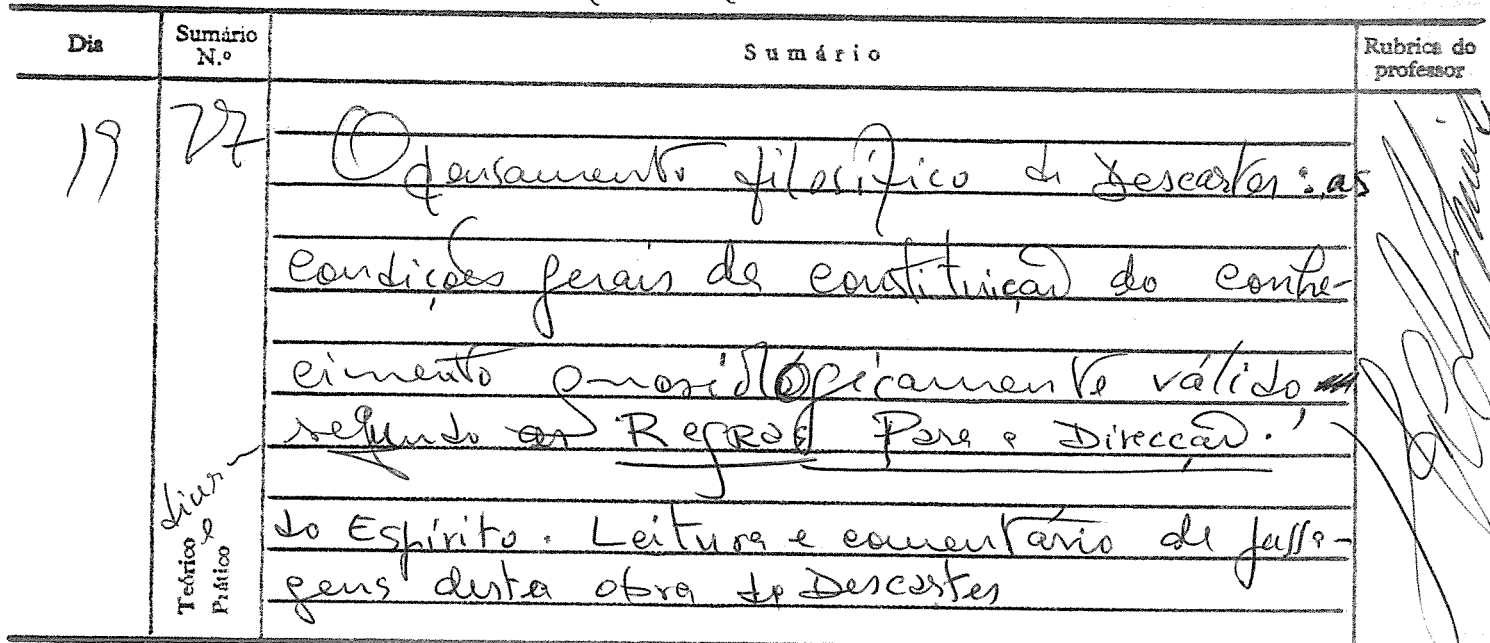 Dia Sumário N.º Sumário Rubrica do professor
19 27 O pensamento filosófico de Descartes: as
condições gerais da constituição do conhe-
cimento gnosiológicamente válido
segundo as Regras Para a Direcção
do Espírito. Leitura e comentário de passa-
gens desta obra de Descartes
Teórico e
Prático